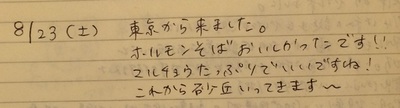 8/23(土) 東京から来ました。
ホルモンそばおいしかったです!!
マルチョウたっぷりでいいですね!
これから砂丘いってきます〜